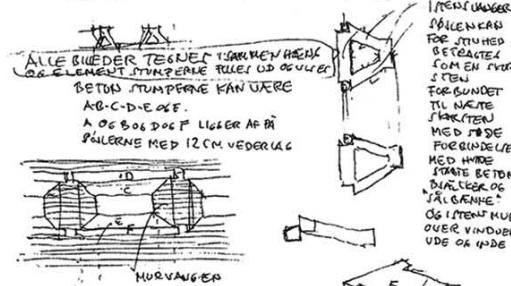 ALLE BILLEDER TEGNES I SAMMENHÆNG
OG ELEMENT STUMPERNE FULLES UD OGULSES
BETON STUMPERNE KAN VÆRE
A·B·C·D·E OG F.
A OG B OG D OG F LIGGER AF PÅ
SÖJLERNE MED 12 CM VEDERLAG
D
C
E
F
MURVANGEN
SØJLEN KAN
FOR STIVHED
BETRAGTES
SOM EN SKOR
STEN
FORBUNDET
TIL NÆSTE
SKORSTEN
MED
FORBINDELSE
MED HVIDE
STØBTE BETON
BJÆLKER OG
"SÅLBÆNKE"
OG ISTENS MUR
OVER VINDUER
UDE OG INDE